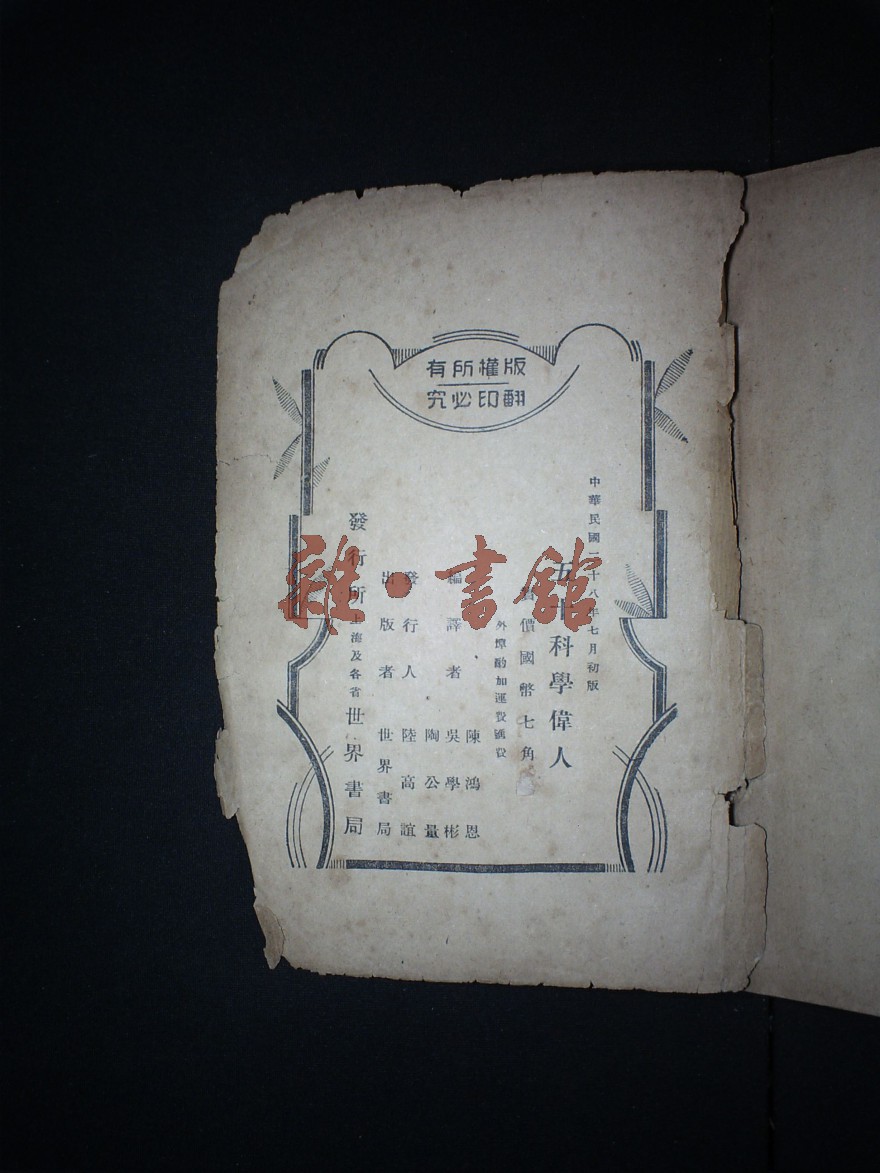 版權所有
翻印必究
中華民國二十八年七月初版
五十科學偉人
實價國幣七角
外埠酌加運費匯費
編譯者
陳鴻恩
吳學彬
陶公量
發行人 陸高誼
出版者 世界書局
發行所 上海及各省 世界書局
雜·書館